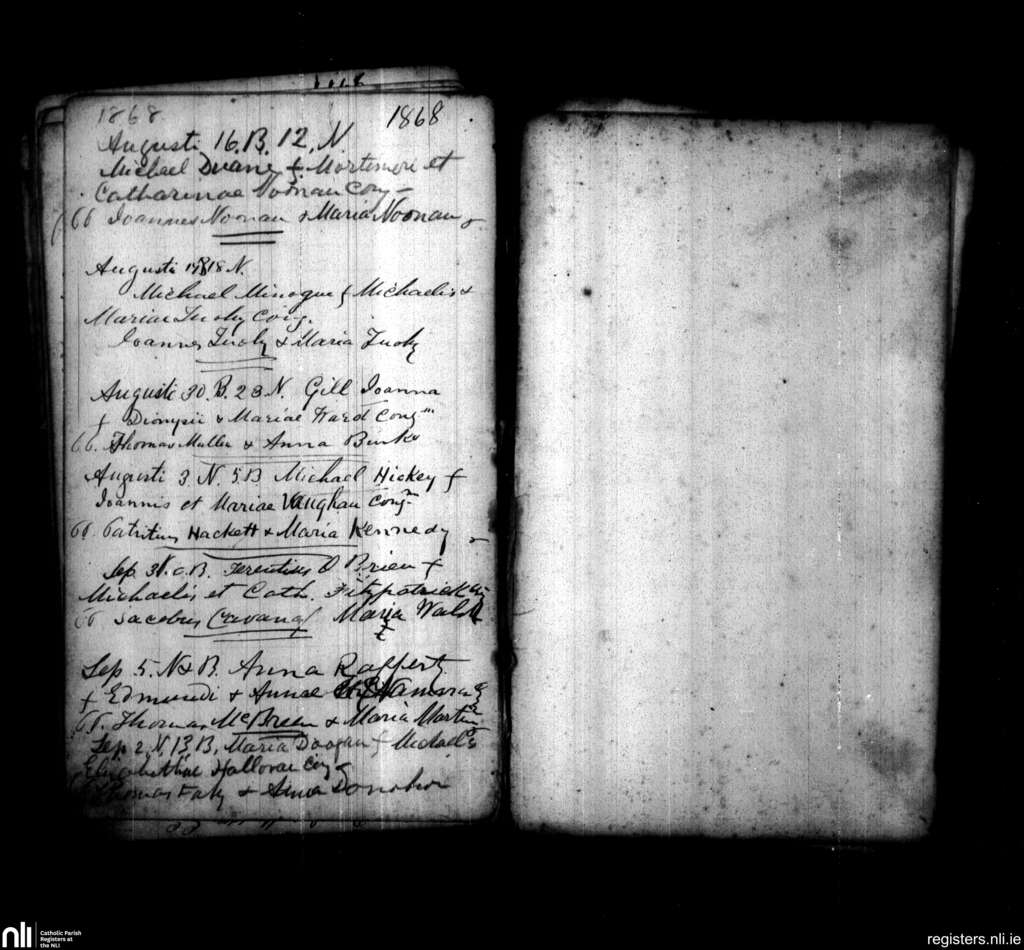 1868 1868
Augusti 16 B. 12. N.
Michael Duane f Mortimori et
Catharinae Noonan Conj
66 Joannes Noonan & Maria Noonan
Augusti 18 N.
Michael Minogue f Michaelis &
Mariae Tuohy Conj.
Joannes Tuohy & Maria Tuohy
Augusti 30. B. 28. N. Gill Joanna
f Dionysii & Mariae Ward Conj
66. Thomas Muller & Anna Burke
Augusti 3 N. 5 B Michael Hickey f
Joannis et Mariae Vaughan Conj
66. Patritius Hackett & Maria Kennedy
Sep. 3 N. B. O Brien f
Michaelis et Cath. Fitzpatrick
66 Jacobus Cavanagh Maria Walsh
Sep 5. N & B. Anna Rafferty
f Edmundi & Annae
66. Thomas McBreen & Maria Martin
Sep 2. N. 13 B. Maria Doogan f Michaelis
Elizabethae Halloran Conj
Thomas Fahy & Anna Donohoe
nli Catholic Parish
Registers at
the NLI
registers.nli.ie